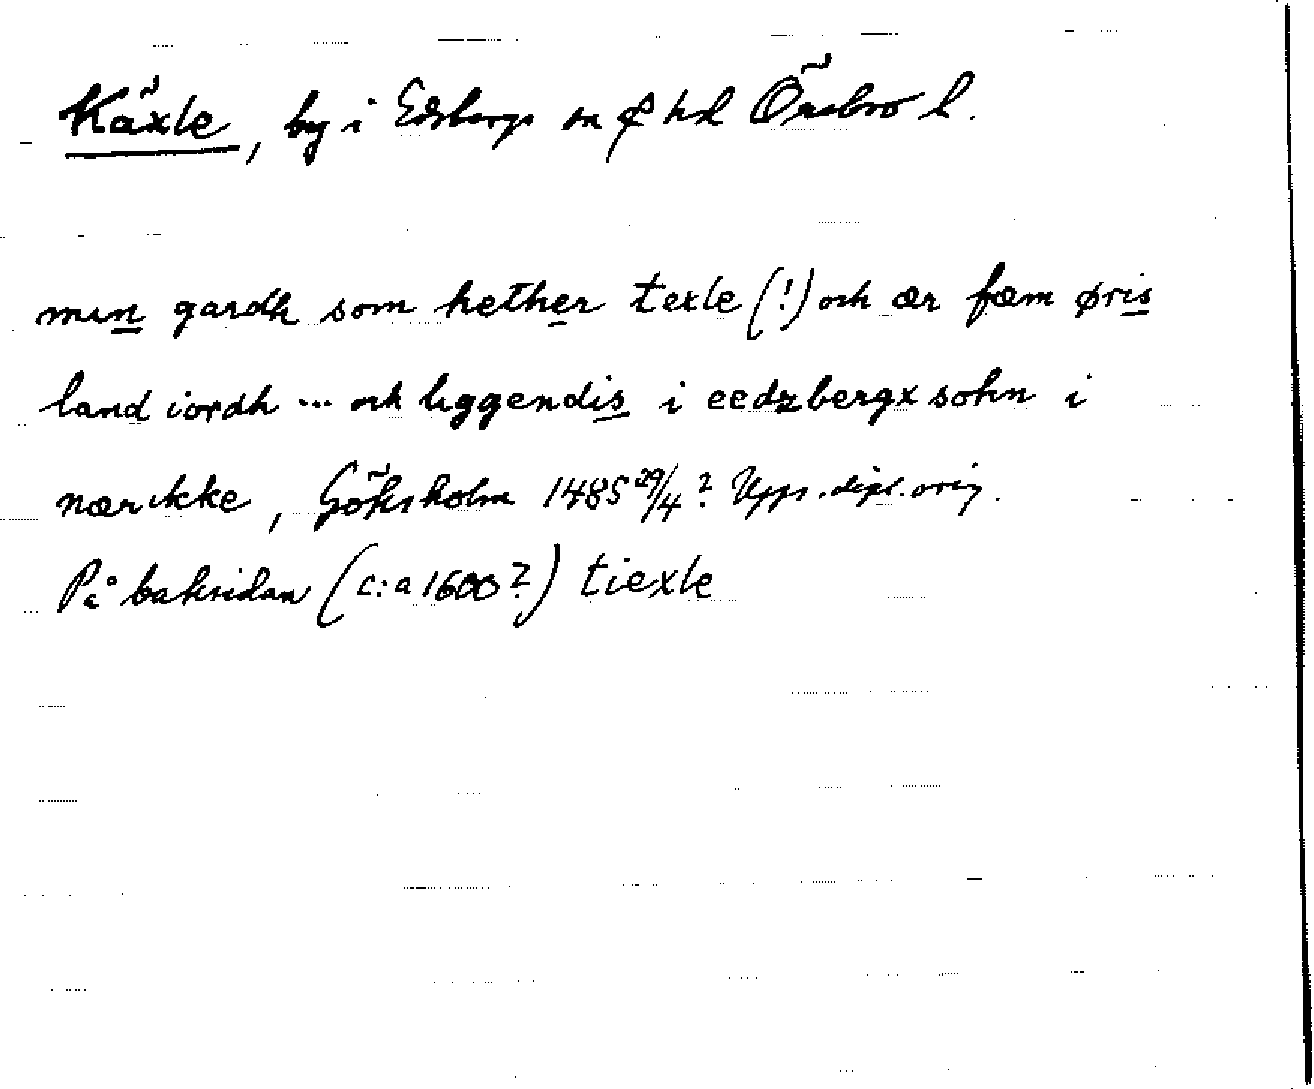 Käxle, by i Edsbergs sn o hd Örebro l.
min gardh som hether texle (!) och ær fæm øris
land iordh ... och liggendis i eedzbergx sokn i
nærikke, Göksholm 1485 29/4? Upps. dipl. orig.
På baksidan (c:a 1600?) tiexle